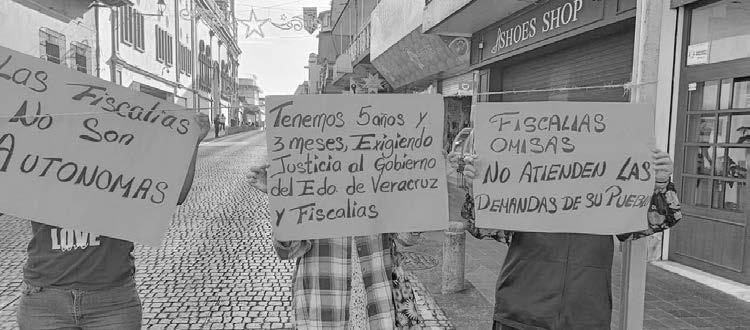 Las Fiscalias
No Son
AUTONOMAS
LOVE
Tenemos 5 años y
3 meses, Exigiendo
Justicia al Gobierno
del Edo. de Veracruz
y Fiscalias
FISCALIAS
OMISAS
NO ATIENDEN LAS
DEMANDAS DE SU PUEBLO
SHOES SHOP